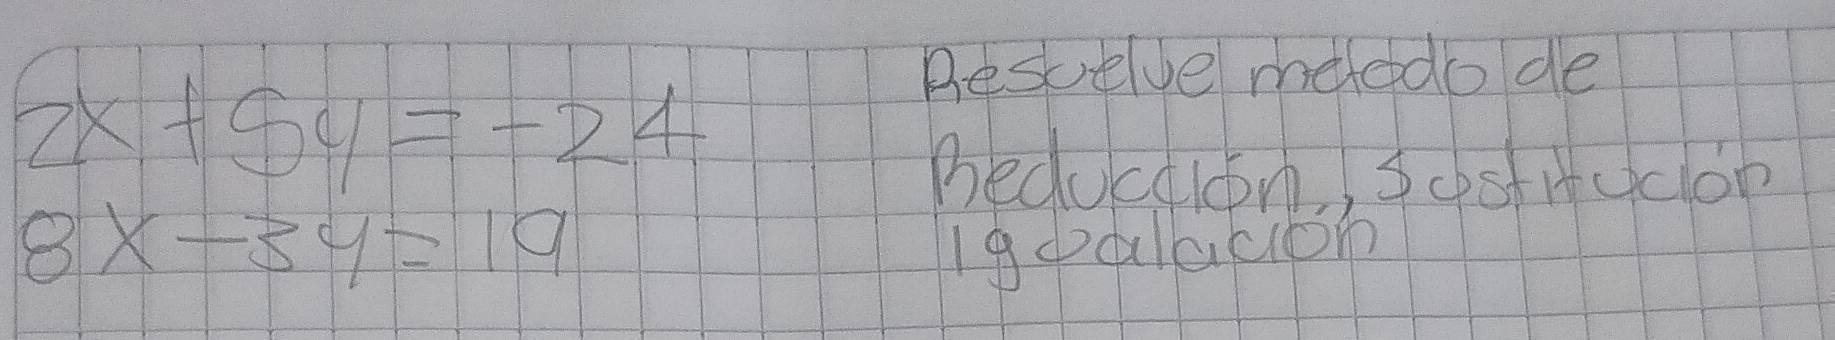 2x + 5y = -24
8x - 3y = 19
Resuelve metodo de
Reducción, Sustitución
igualación